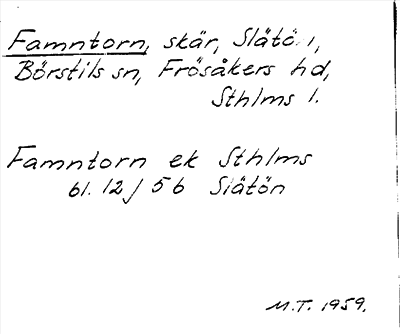 Famntorn, skär, Slätö 1,
Börstils sn, Frösåkers hd,
Sthlms l.
Famntorn ek Sthlms
bl. 12/56 Slätön
M.T. 1959.